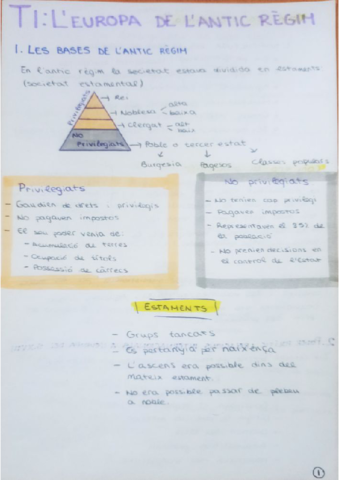 T1: L'EUROPA DE L'ANTIC RÈGIM
1. LES BASES DE L'ANTIC RÈGIM
En l'antic règim la societat estava dividida en estaments
(societat estamental)
Privilegiats
Rei
Noblesa
alta
baixa
Clergat
alt
baix
No
Privilegiats
Poble o tercer estat
Burgesia
Pagesos
Classes populars
Privilegiats
- Gaudien de drets i privilegis
- No pagaven impostos
- El seu poder venia de:
- Acumulació de terres
- Ocupació de títols
- Possessió de càrrecs
No privilegiats
- No tenien cap privilegi
- Pagaven impostos
- Representaven el
- No prenien decisions en
el control de l'Estat
ESTAMENTS
- Grups tancats
- Es pertanyia per naixença
- L'ascens era possible dins del
mateix estament.
- No era possible passar de
a noble.
1